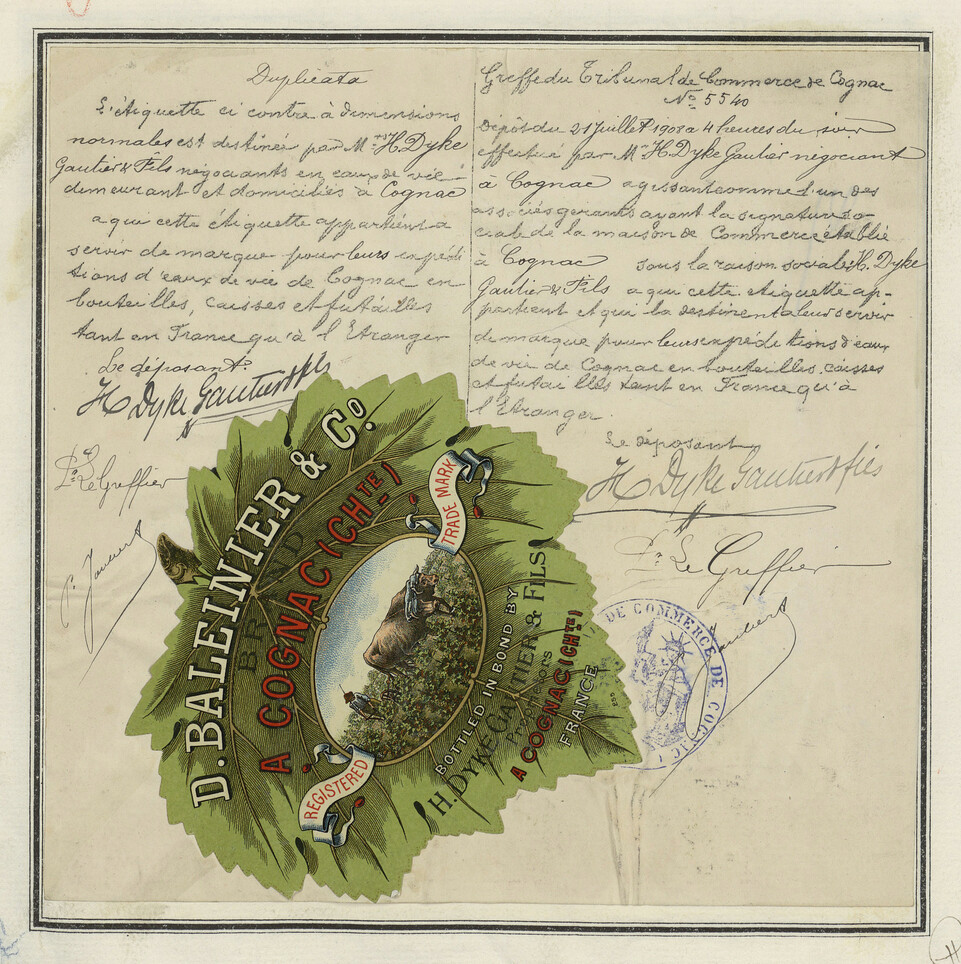 Duplicata
L'étiquette ci contre à dimensions
normales est destinée par Mrs H. Dyke
Gautier & Fils négociants en eaux de vie
demeurant et domiciliés à Cognac
a qui cette étiquette appartient à
servir de marque pour leurs expédi
tions d'eaux de vie de Cognac en
bouteilles, caisses et futailles
tant en France qu'à l'Etranger
Le déposant.
H Dyke Gautier & fils
Pr Le Greffier
Greffe du Tribunal de Commerce de Cognac
No 5540
Dépôt du 21 Juillet 1903 a 4 heures du soir
effectué par Mr H. Dyke Gautier négociant
à Cognac agissant comme l'un des
associés gérants ayant la signature so-
ciale de la maison de Commerce établie
à Cognac sous la raison sociale H. Dyke
Gautier & Fils a qui cette étiquette ap-
partient et qui la destinent a leur servir
de marque pour leurs expéditions d'eaux
de vie de Cognac en bouteilles, caisses
et futailles tant en France qu'à
l'Etranger.
Le déposant
H Dyke Gautier & fils
Pr Le Greffier
D. BALEINIER & Co.
BRAND
A COGNAC (CHTE)
TRADE MARK
REGISTERED
BOTTLED IN BOND BY
H. DYKE GAUTIER & FILS
PROPRIETORS
A COGNAC (CHTE)
FRANCE
DE COMMERCE DE COGNAC